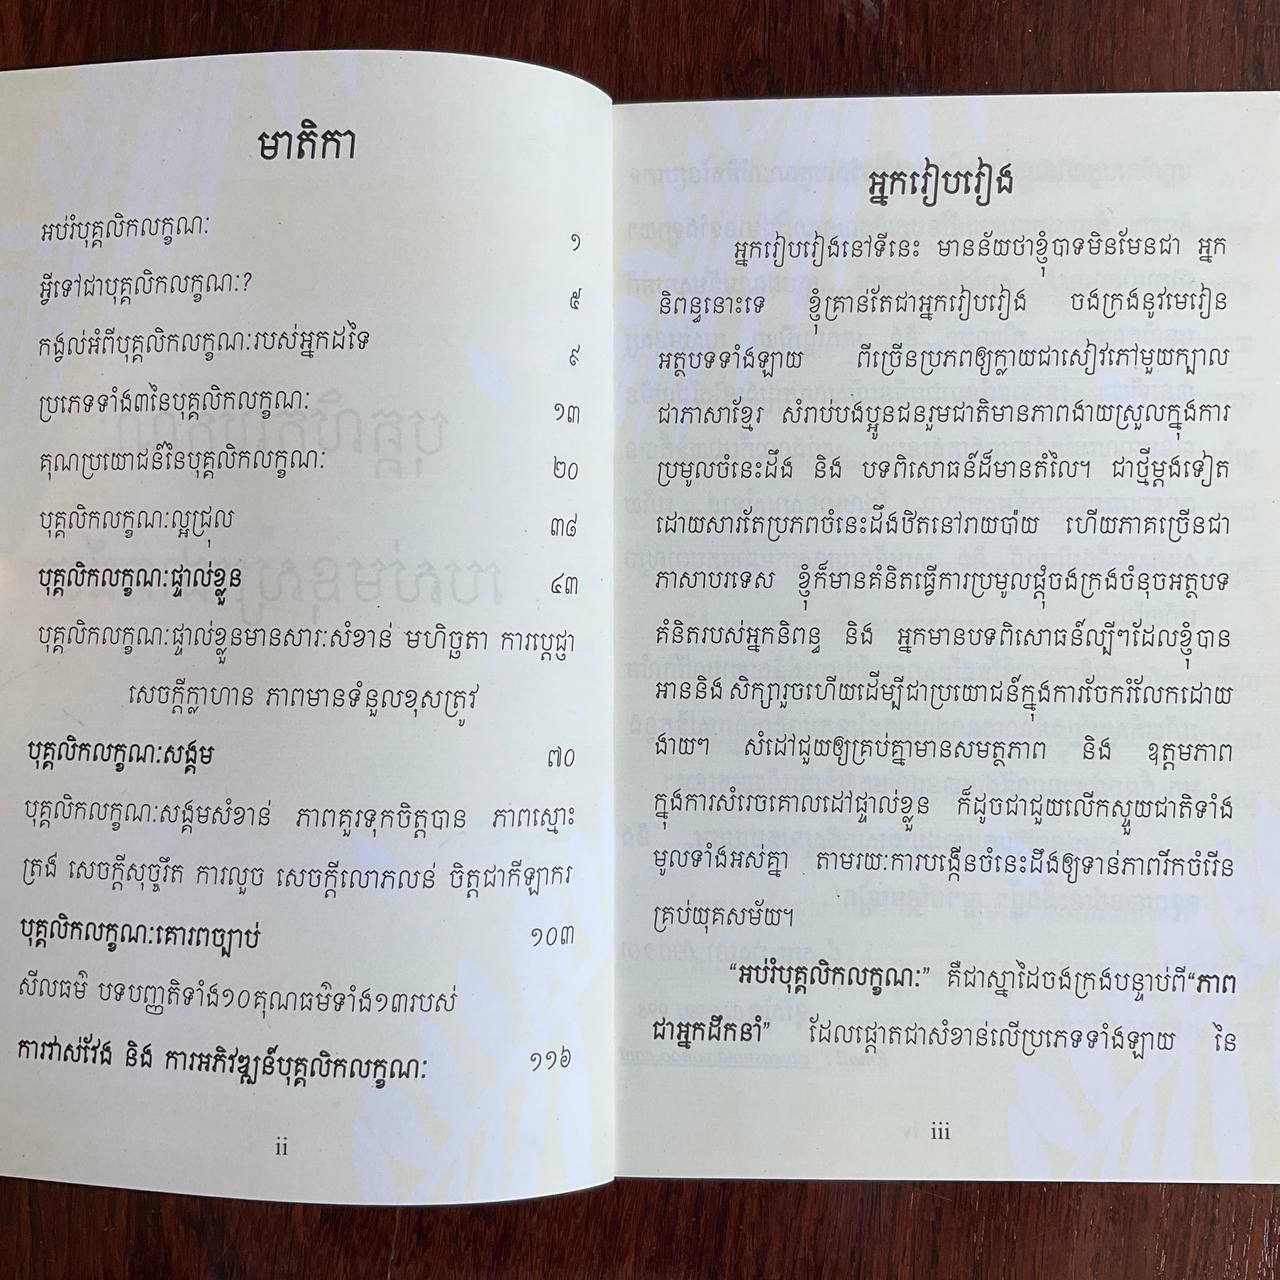 មាតិកា
អប់រំបុគ្គលិកលក្ខណៈ ១
អ្វីទៅជាបុគ្គលិកលក្ខណៈ? ៥
កង្វល់អំពីបុគ្គលិកលក្ខណៈរបស់អ្នកដទៃ ៩
ប្រភេទទាំង៣នៃបុគ្គលិកលក្ខណៈ ១៣
គុណប្រយោជន៍នៃបុគ្គលិកលក្ខណៈ ២០
បុគ្គលិកលក្ខណៈល្អជ្រុល ៣៨
បុគ្គលិកលក្ខណៈផ្ទាល់ខ្លួន ៤៣
បុគ្គលិកលក្ខណៈផ្ទាល់ខ្លួនមានសារៈសំខាន់ មហិច្ឆតា ការប្ដេជ្ញា
សេចក្ដីក្លាហាន ភាពមានទំនួលខុសត្រូវ
បុគ្គលិកលក្ខណៈសង្គម ៧០
បុគ្គលិកលក្ខណៈសង្គមសំខាន់ ភាពគួរទុកចិត្តបាន ភាពស្មោះ
ត្រង់ សេចក្ដីសុច្ចរឹត ការលួច សេចក្ដីលោភលន់ ចិត្តជាកីឡាករ
បុគ្គលិកលក្ខណៈគោរពច្បាប់ ១០៣
សីលធម៌ បទបញ្ញត្តិទាំង១០គុណធម៌ទាំង១៣របស់
ការវាស់វែង និង ការអភិវឌ្ឍន៍បុគ្គលិកលក្ខណៈ ១១៦
ii
អ្នករៀបរៀង
អ្នករៀបរៀងនៅទីនេះ មានន័យថាខ្ញុំបាទមិនមែនជា អ្នក
និពន្ធនោះទេ ខ្ញុំគ្រាន់តែជាអ្នករៀបរៀង ចងក្រងនូវមេរៀន
អត្ថបទទាំងឡាយ ពីច្រើនប្រភពឲ្យក្លាយជាសៀវភៅមួយក្បាល
ជាភាសាខ្មែរ សំរាប់បងប្អូនជនរួមជាតិមានភាពងាយស្រួលក្នុងការ
ប្រមូលចំនេះដឹង និង បទពិសោធន៍ដ៏មានតំលៃ។ ជាថ្មីម្ដងទៀត
ដោយសារតែប្រភពចំនេះដឹងឋិតនៅរាយប៉ាយ ហើយភាគច្រើនជា
ភាសាបរទេស ខ្ញុំក៏មានគំនិតធ្វើការប្រមូលផ្ដុំចងក្រងចំនុចអត្ថបទ
គំនិតរបស់អ្នកនិពន្ធ និង អ្នកមានបទពិសោធន៍ល្បីៗដែលខ្ញុំបាន
អាននិង សិក្សារួចហើយដើម្បីជាប្រយោជន៍ក្នុងការចែករំលែកដោយ
ងាយ។ សំដៅជួយឲ្យគ្រប់គ្នាមានសមត្ថភាព និង ឧត្ដមភាព
ក្នុងការសំរេចគោលដៅផ្ទាល់ខ្លួន ក៏ដូចជាជួយលើកស្ទួយជាតិទាំង
មូលទាំងអស់គ្នា តាមរយៈការបង្កើនចំនេះដឹងឲ្យទាន់ភាពរីកចំរើន
គ្រប់យុគសម័យ។
“អប់រំបុគ្គលិកលក្ខណៈ” គឺជាស្នាដៃចងក្រងបន្ទាប់ពី“ភាព
ជាអ្នកដឹកនាំ” ដែលផ្ដោតជាសំខាន់លើប្រភេទទាំងឡាយ នៃ
iii